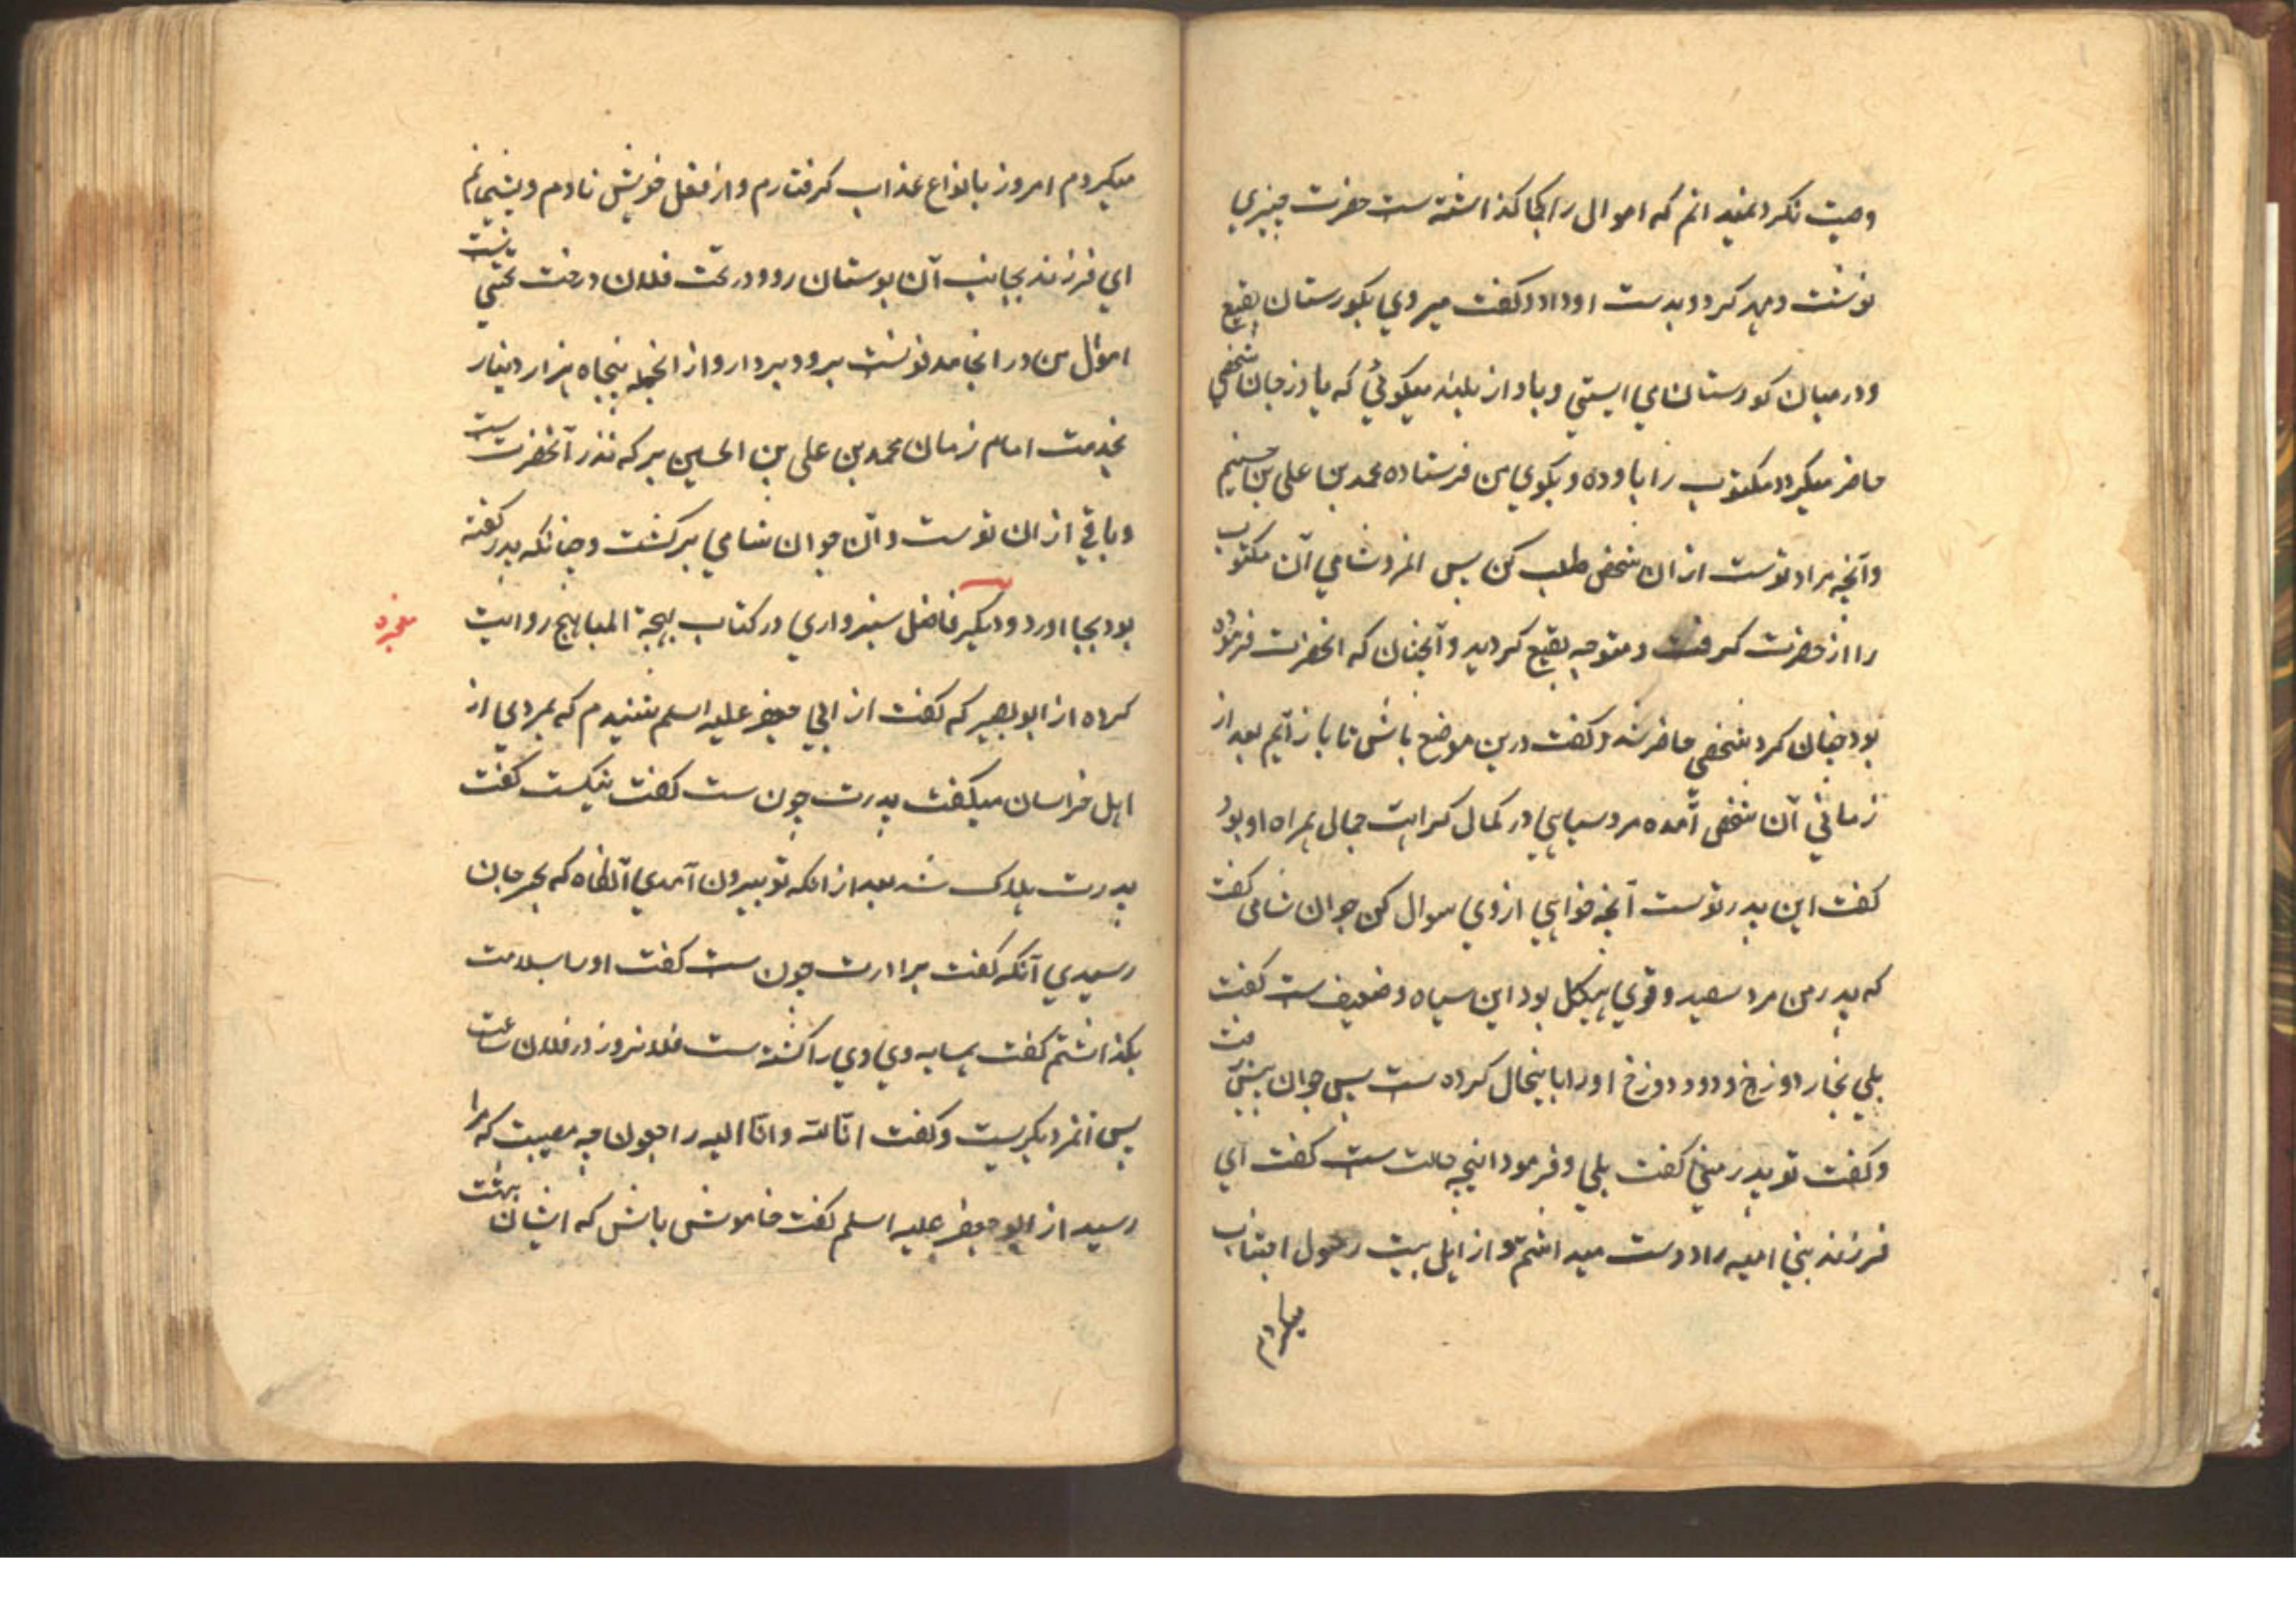 وصیت نکرد نمیدانم که اموال را کجا گذاشته ست حضرت چیزی
نوشت و مهر کرد و بدست او داد و گفت میروی بگورستان بقیع
و در میان گورستان می ایستی و باواز بلند میگوئی که یا درجان شخصی
حاضر میگردد مکتوب را باو ده و بگوی من فرستاده محمد بن علی بن حسینم
و آنچه مراد توست از ان شخص طلب کن پس انمرد شامی آن مکتوب
را از حضرت گرفت و متوجه بقیع گردید و آنچنان که انحضرت فرموده
بود چنان کرد شخصی حاضر شد و گفت درین موضع باش تا باز آیم بعد از
زمانی آن شخص آمده مرد سیاهی در کمال کراهت جمال همراه او بود
گفت این پدر توست آنچه خواهی از وی سوال کن جوان شامی گفت
که پدر من مرد سفید و قوی هیکل بود این سیاه و ضعیف ست گفت
بلی بخار دوزخ و دود دوزخ او را باینحال کرده ست پس جوان پیش رفت
و گفت تو پدر منی گفت بلی و فرمود اینچه حالت ست گفت ای
فرزند بنی امیه را دوست میداشتم و از اهل بیت رسول اجتناب
میکردم
میکردم امروز بانواع عذاب گرفتارم و از فعل خویش نادم و پشیمانم
ای فرزند بجانب آن بوستان رو و در تحت فلان درخت
اموال من در انجا مدفونست برو و بردار و از انجمله پنجاه هزار دینار
بخدمت امام زمان محمد بن علی بن الحسین بر که نذر آنحضرت ست
و باقی از ان توست و آن جوان شامی برگشت و چنانکه پدر گفته
بود بجا اورد و دیگر فاضل سبزواری در کتاب بهجة المباهج روایت
معجزه
کرده از ابو بصیر که گفت از ابی جعفر علیه السلم شنیدم که بمردی از
اهل خراسان میگفت پدرت چون ست گفت نیکست گفت
پدرت هلاک شد بعد از انکه تو بیرون آمدی آنگاه که بجرجان
رسیدی آنگه گفت برادرت چون ست گفت او را سلامت
بگذاشتم گفت همسایه وی وی را کشته ست فلان روز در فلان ساعت
پس انمرد بگریست و گفت انا لله و انا الیه راجعون چه مصیبت که مرا
رسید از ابو جعفر علیه السلم گفت خاموش باش که ایشان بهشت